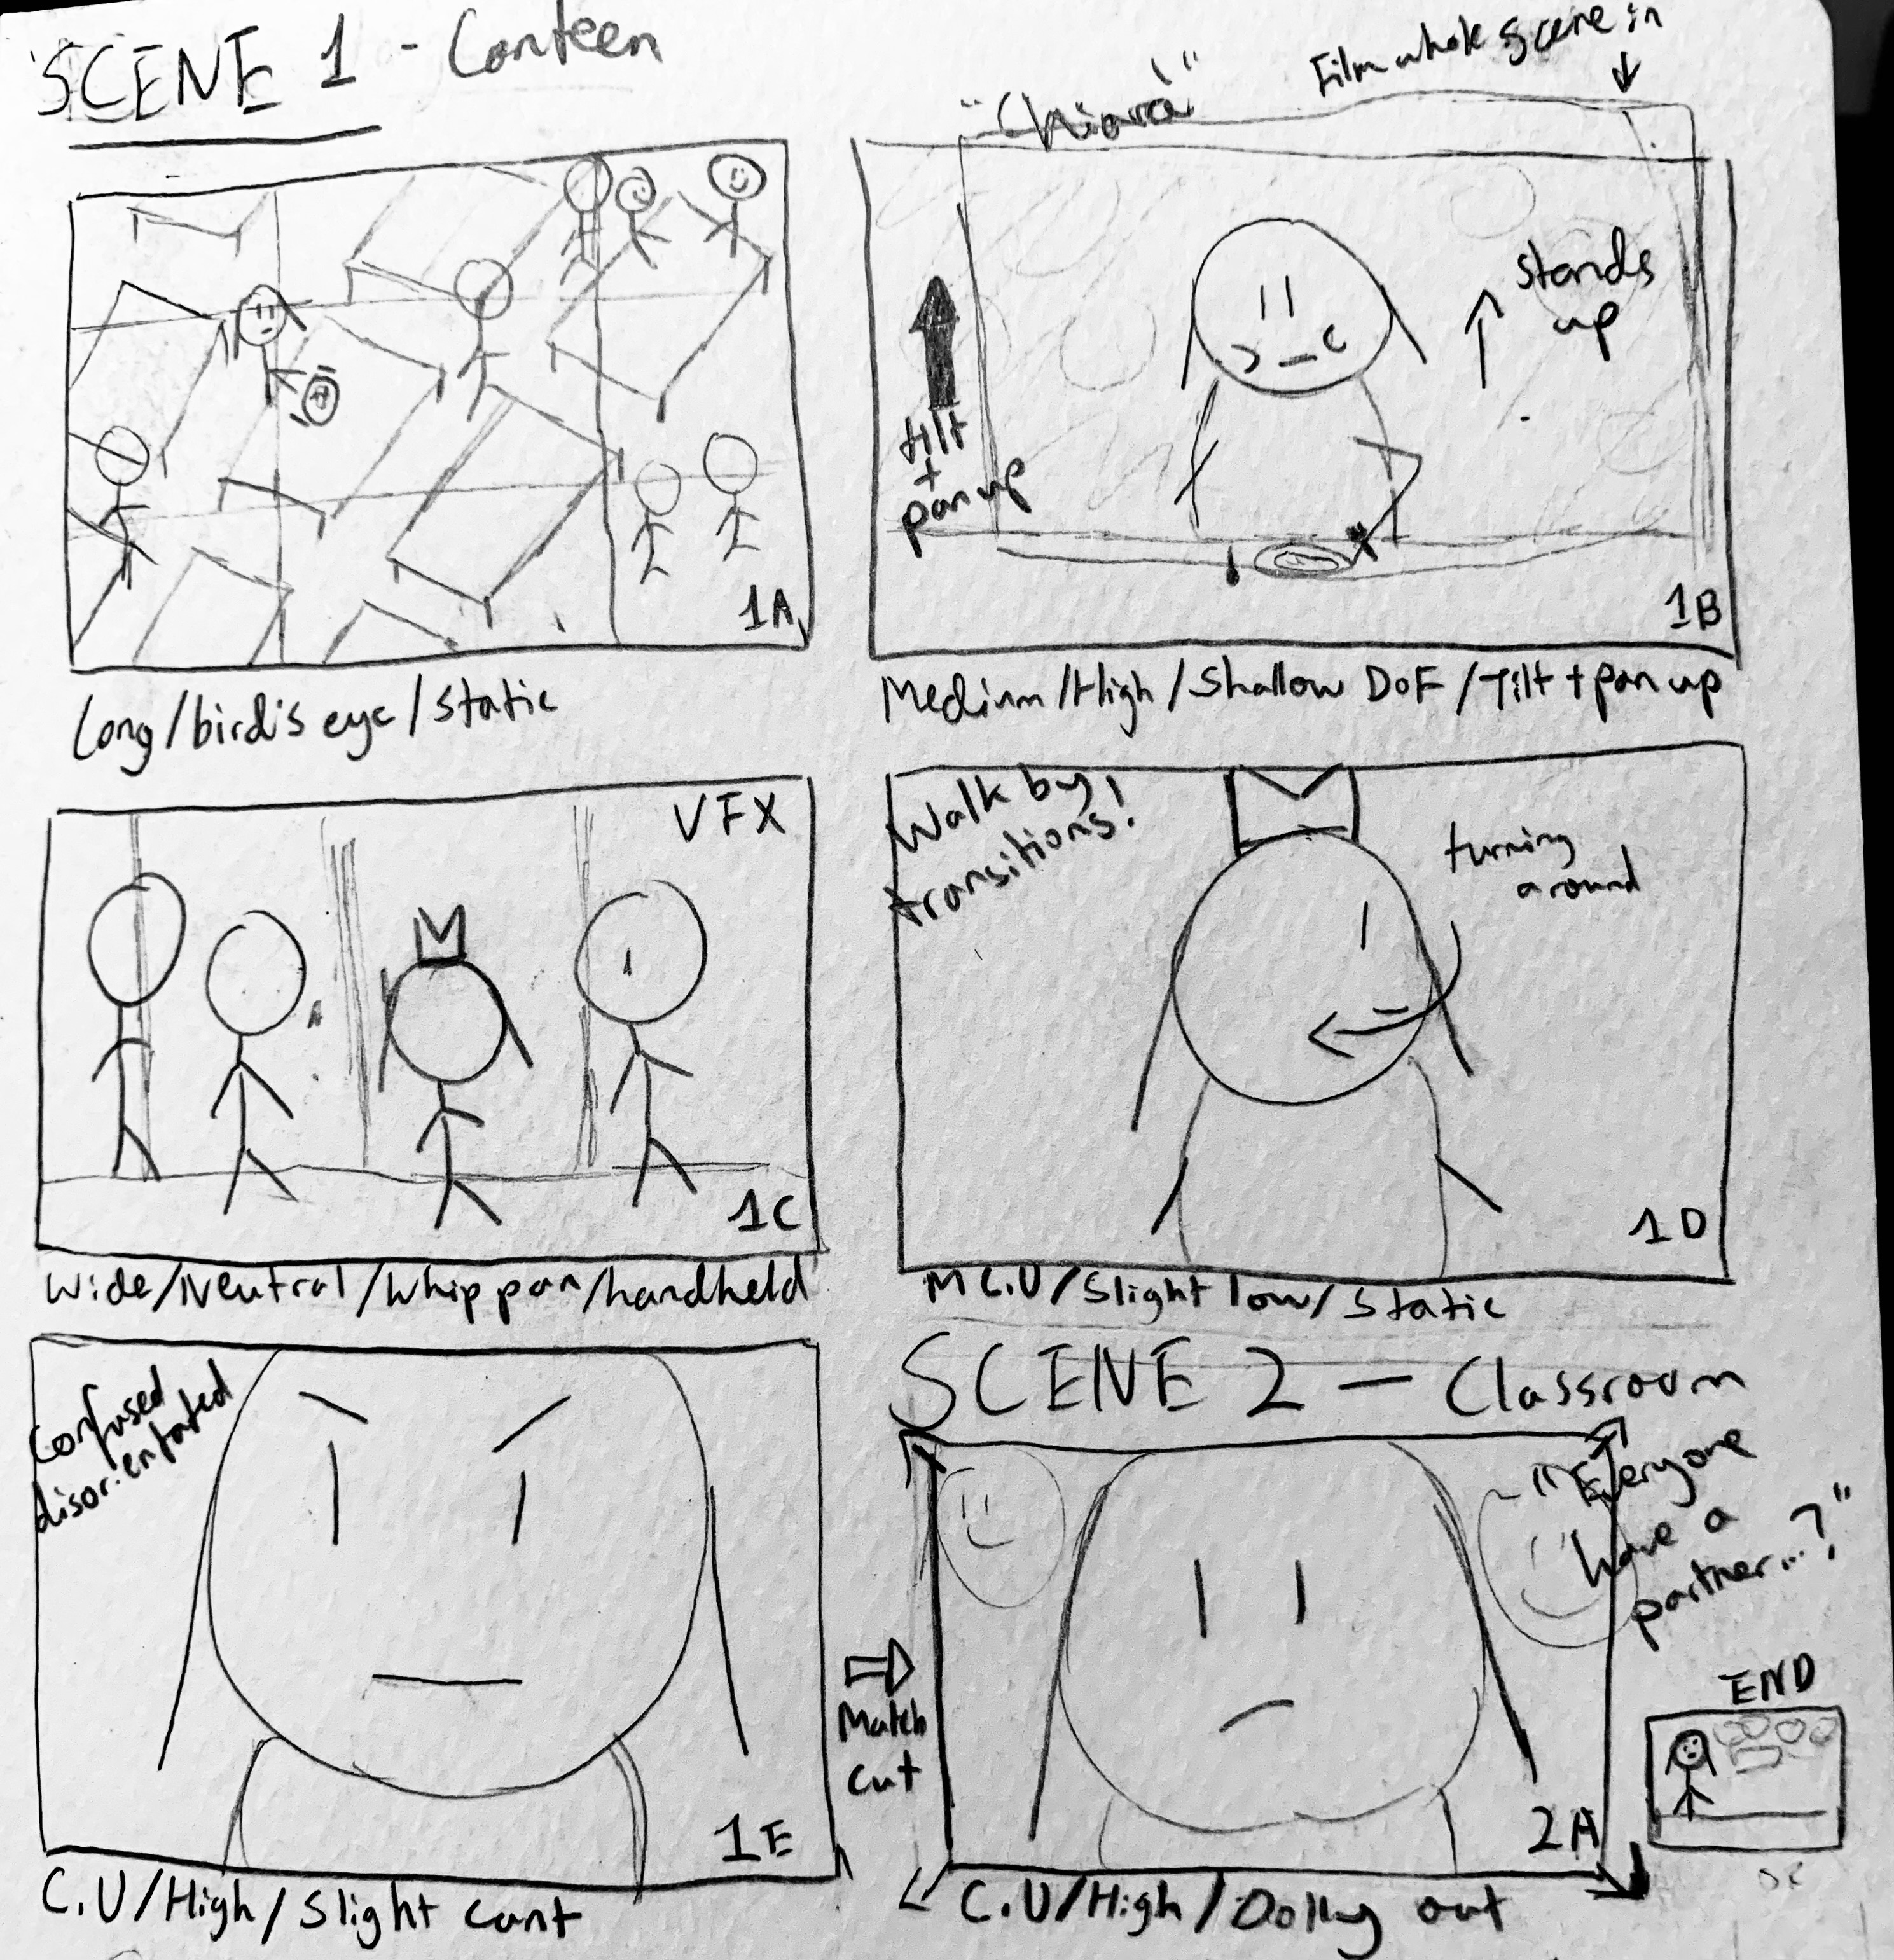 SCENE 1 - Canteen
"Chiara"
Film whole scene in
1A
Long/bird's eye/static
tilt
+
pan up
stands
up
1B
Medium/High/Shallow DoF/Tilt + pan up
VFX
1C
Wide/Neutral/Whip pan/handheld
Walk by
transitions!
turning
around
1D
M C.U/Slight low/Static
Confused
disorientated
1E
C.U/High/Slight cant
Match
cut
SCENE 2 - Classroom
"Everyone
have a
partner...?"
2A
C.U/High/Dolly out
END